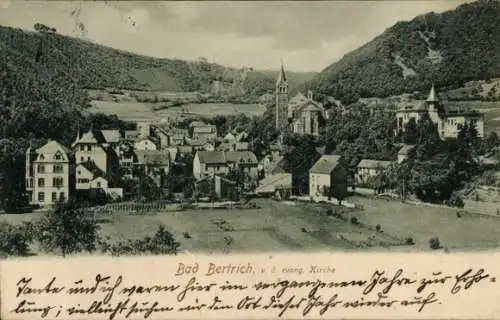 Bad Bertrich, v. d. evang. Kirche
Tante und ich waren hier im vergangenen Jahre zur Erho-
lung; vielleicht suchen wir den Ort dieses Jahr wieder auf.